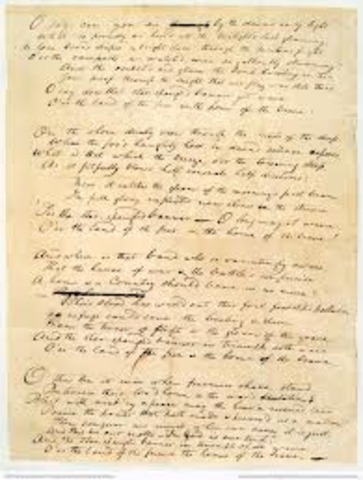 O say can you see by the dawn's early light
What so proudly we hail'd at the twilight's last gleaming,
Whose broad stripes & bright stars through the perilous fight
O'er the ramparts we watch'd, were so gallantly streaming?
And the rocket's red glare, the bomb bursting in air,
Gave proof through the night that our flag was still there
O say does that star-spangled banner yet wave
O'er the land of the free & the home of the brave?
On the shore dimly seen through the mists of the deep,
Where the foe's haughty host in dread silence reposes,
What is that which the breeze, o'er the towering steep,
As it fitfully blows, half conceals, half discloses?
Now it catches the gleam of the morning's first beam,
In full glory reflected now shines in the stream,
'Tis the star-spangled banner — O long may it wave
O'er the land of the free & the home of the brave!
And where is that band who so vauntingly swore,
That the havoc of war & the battle's confusion
A home & a Country should leave us no more?
Their blood has wash'd out their foul footstep's pollution
No refuge could save the hireling & slave
From the terror of flight or the gloom of the grave,
And the star-spangled banner in triumph doth wave
O'er the land of the free & the home of the brave.
O thus be it ever when freemen shall stand
Between their lov'd home & the war's desolation!
Blest with vict'ry & peace may the heav'n rescued land
Praise the power that hath made & preserv'd us a nation!
Then conquer we must, when our cause it is just,
And this be our motto — "In God is our trust"
And the star-spangled banner in triumph shall wave
O'er the land of the free & the home of the brave. —